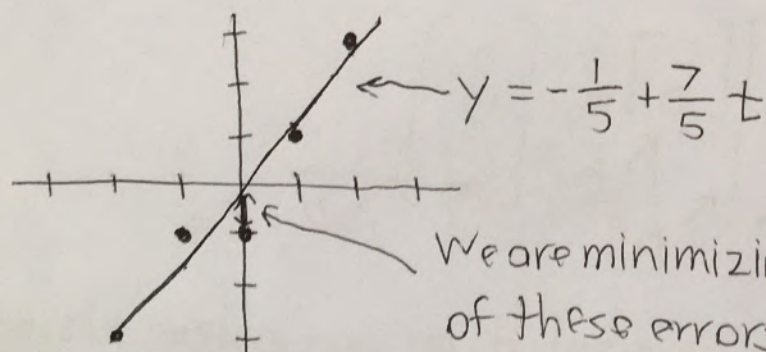 y = -1/5 + 7/5 t
We are minimizi
of these errors